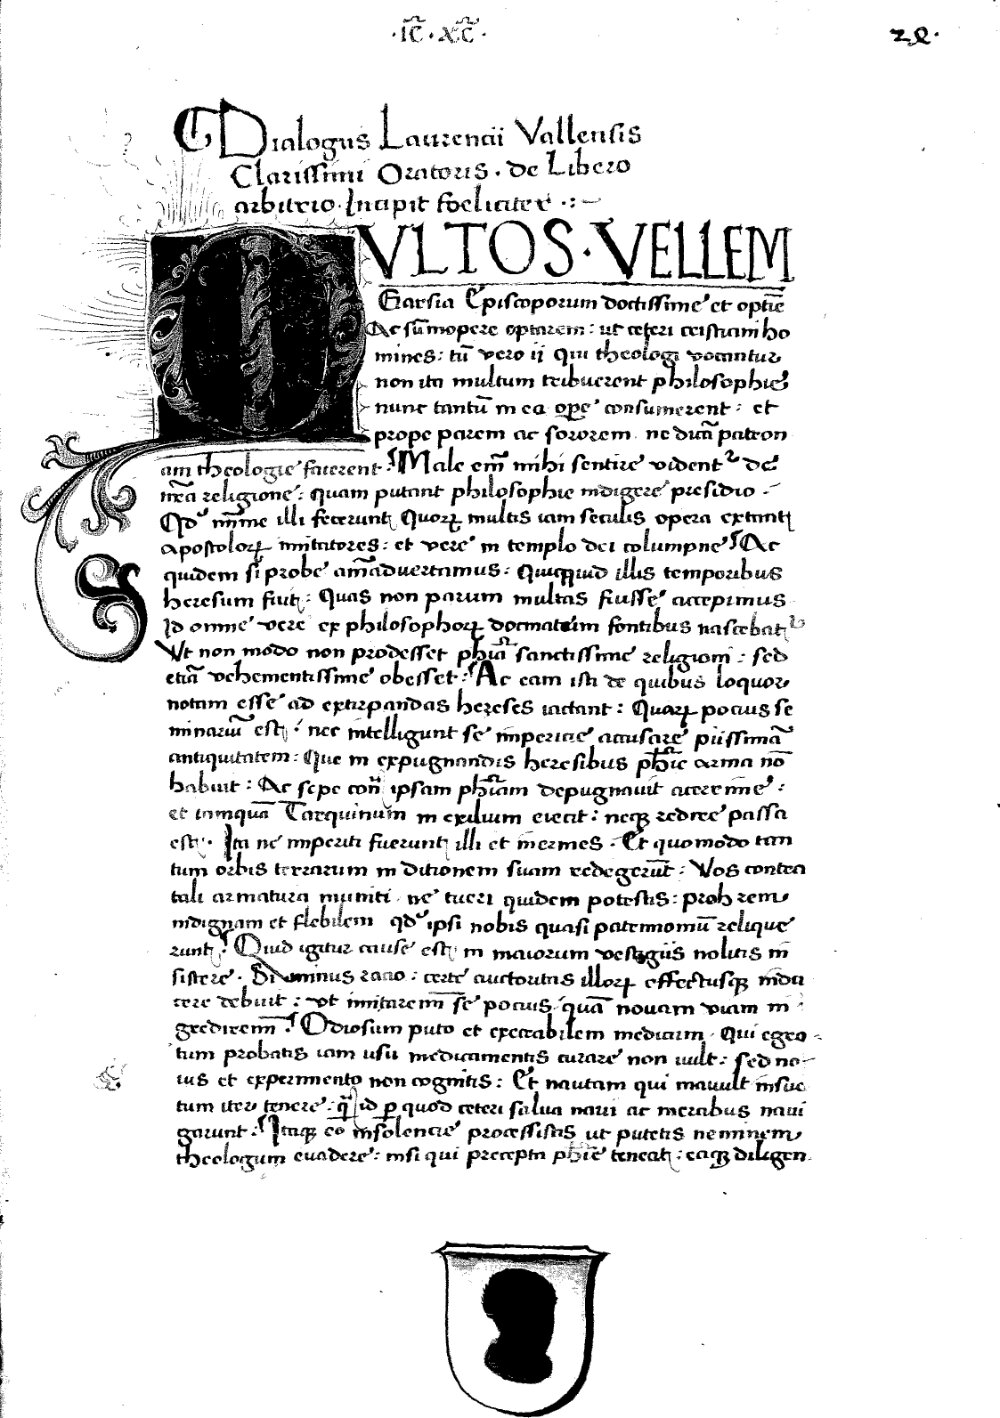 ·IC̄·XC̄·
28·
Dialogus Laurencii Vallensis
Clarissimi Oratoris. de Libero
arbitrio. Incipit foeliciter .:~
MVLTOS·VELLEM
Garsia Episcoporum doctissime et optīe
Ac sūmopere optarem: ut ceteri cristiani ho
mines: tū vero ii qui theologi vocantur
non ita multum tribuerent philosophie
nunc tantū in ea ope consumerent: et
prope parem ac sororem. ne dicā patron
am theologie facerent. Male em̄ mihi sentire vident de
nr̄a religione: quam putant philosophie indigere presidio.
Qd minime illi fecerunt quorꝝ multis iam seculis opera extant
apostolorꝝ imitatores: et vere in templo dei columpne. Ac
quidem si probe aīaduertamus: Quicquid illis temporibus
heresum fuit: Quas non parum multas fuisse accepimus
Id omne vere ex philosophorꝝ docmatum fontibus nascebat
Vt non modo non prodesset phīa sanctissime religioni: sed
etiā vehementissime obesset. Ac eam isti de quibus loquor
notam esse ad extirpandas hereses iactant: Quarꝝ pocius se
minariū est: nec intelligunt se imperitie accusare piissimā
antiquitatem: Que in expugnandis heresibus phīe arma nō
habuit: Ac sepe con ipsam phīam depugnauit acerrime:
et tamquā Tarquinum in exilium eiecit: neqꝫ redire passa
est. Ita ne imperiti fuerunt illi et inermes. Et quomodo tan
tum orbis terrarum in ditionem suam redegerūt: Vos contra
tali armatura muniti. ne tueri quidem potestis: proh rem
indignam et flebilem qd ipsi nobis quasi patrimoniū relique
runt. Quid igitur cause est in maiorum vestigiis nolitis in
sistere. Si minus racio: certe auctoritas illorꝝ effectusqꝫ indu
cere debuit: ut imitarem̄ se pocius quā nouam viam in
gredirem̄. Odiosum puto et execrabilem medicum. Qui egro
tum probatis iam usu medicamentis curare non uult: sed no
uis et experimento non cognitis: Et nautam qui mauult insue
tum iter tenere: q̄ id p quod ceteri salua naui ac mercibus naui
garunt. Itaqꝫ eo insolencie processistis ut putetis neminem
theologum euadere: nisi qui precepta phīe teneat: eaqꝫ diligen